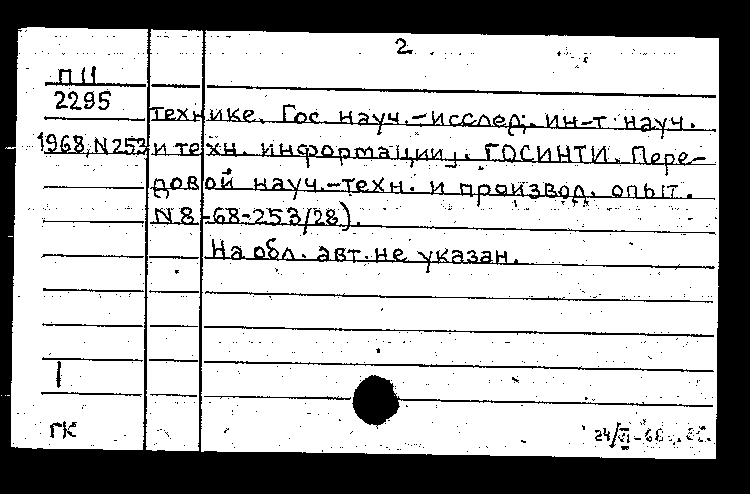 2
П11
2295
1968, N253
технике. Гос. науч.-исслед. ин-т науч.
и техн. информации]. ГОСИНТИ. Пере-
довой науч.-техн. и производ. опыт.
N8-68-253/28).
На обл. авт. не указан.
1
ГК
24/VI-68